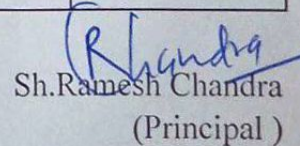 RChandra
Sh.Ramesh Chandra
(Principal )